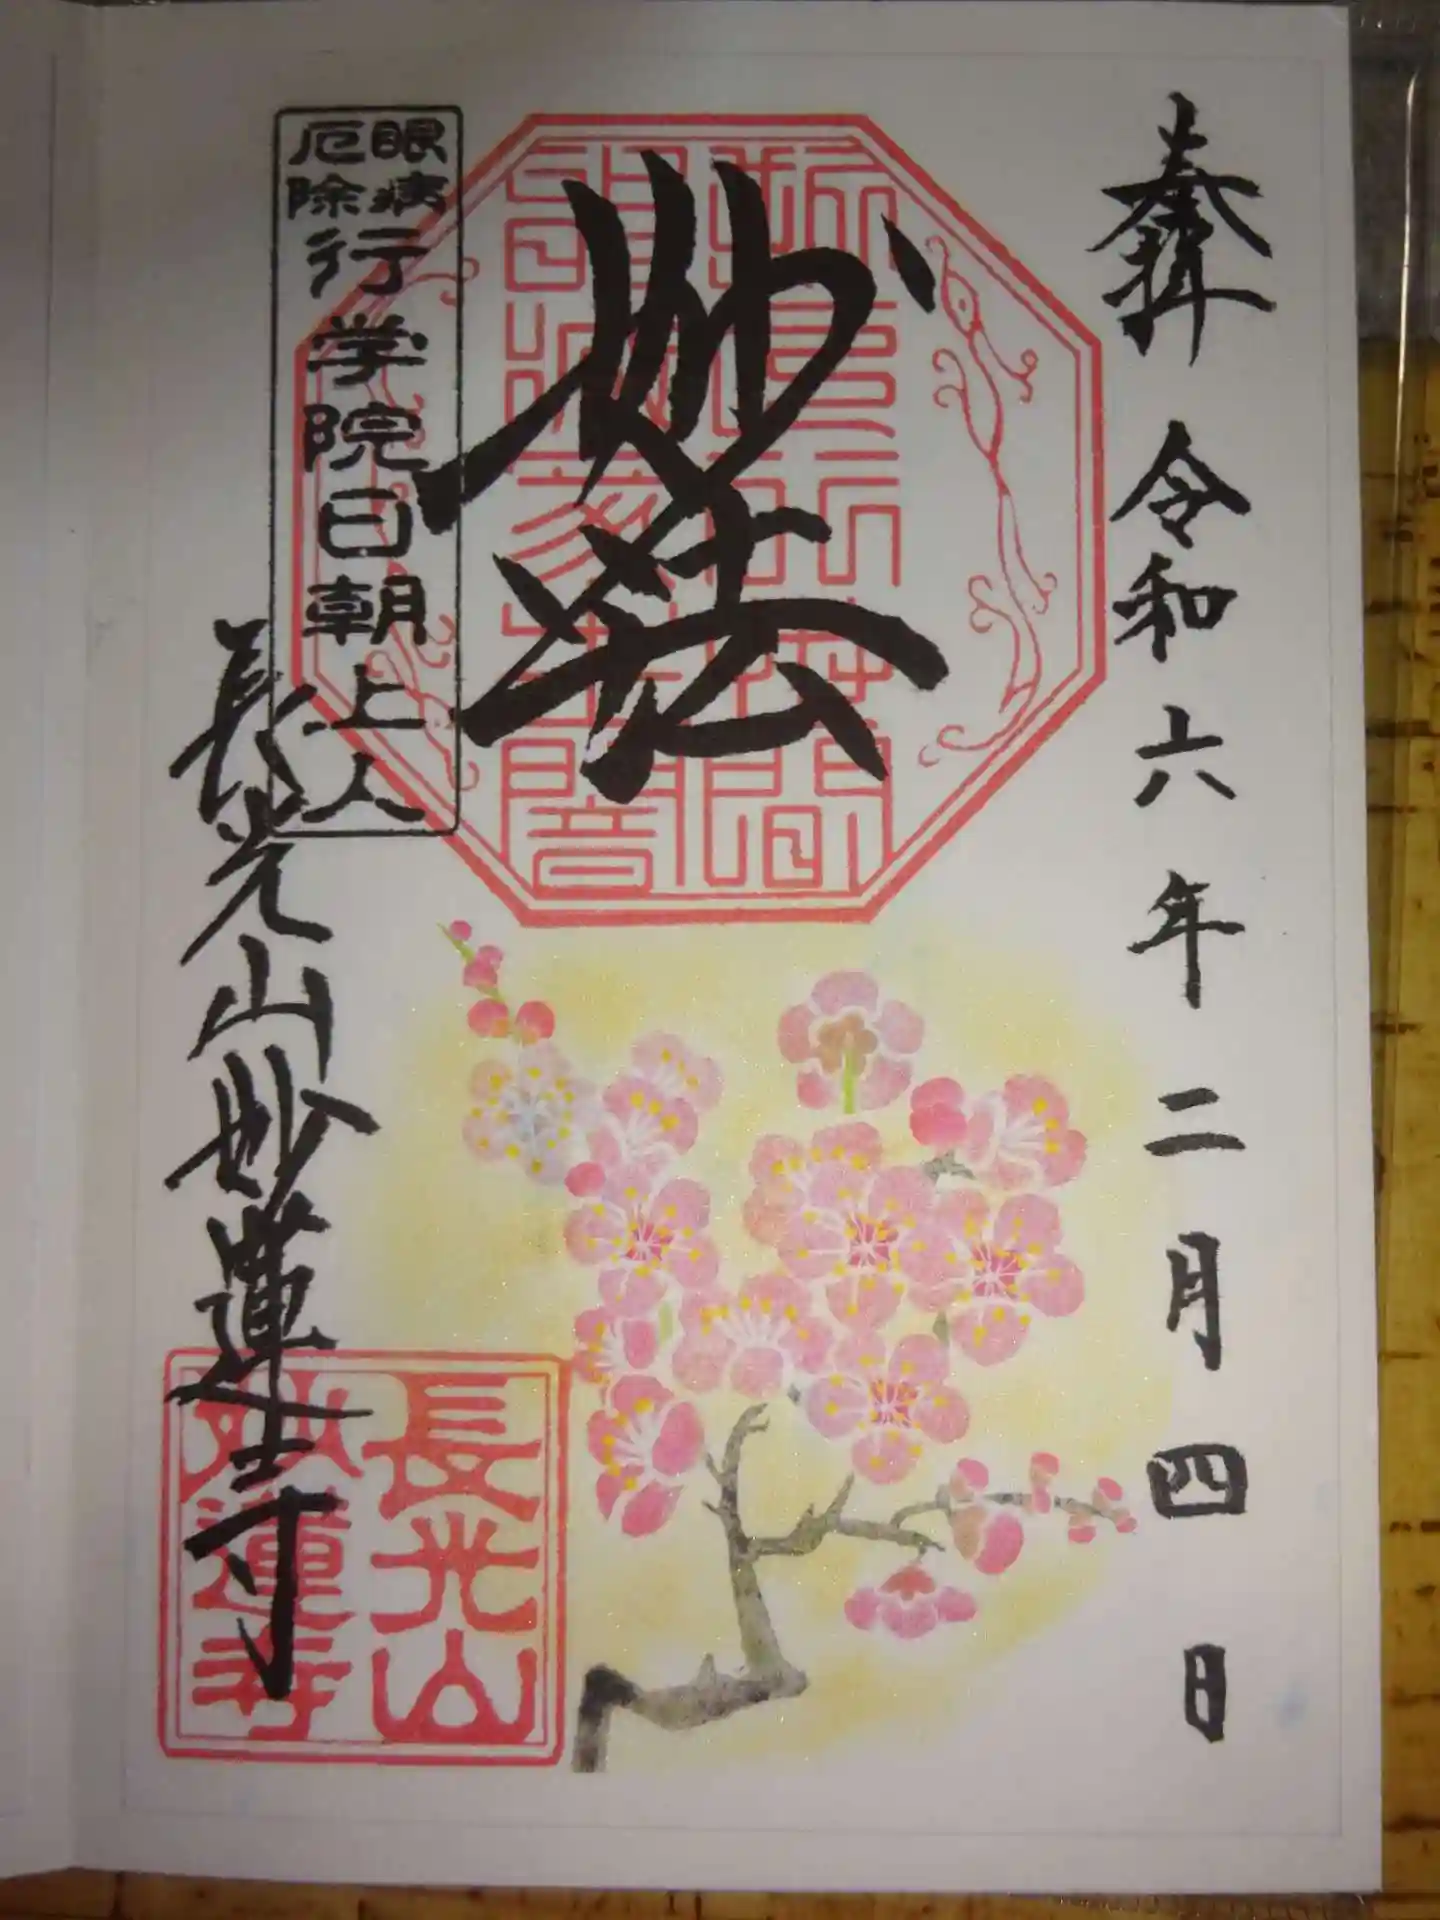 奉拝
令和六年二月四日
妙法
眼病
厄除
行学院日朝上人
長光山妙蓮寺
長光山
妙蓮寺